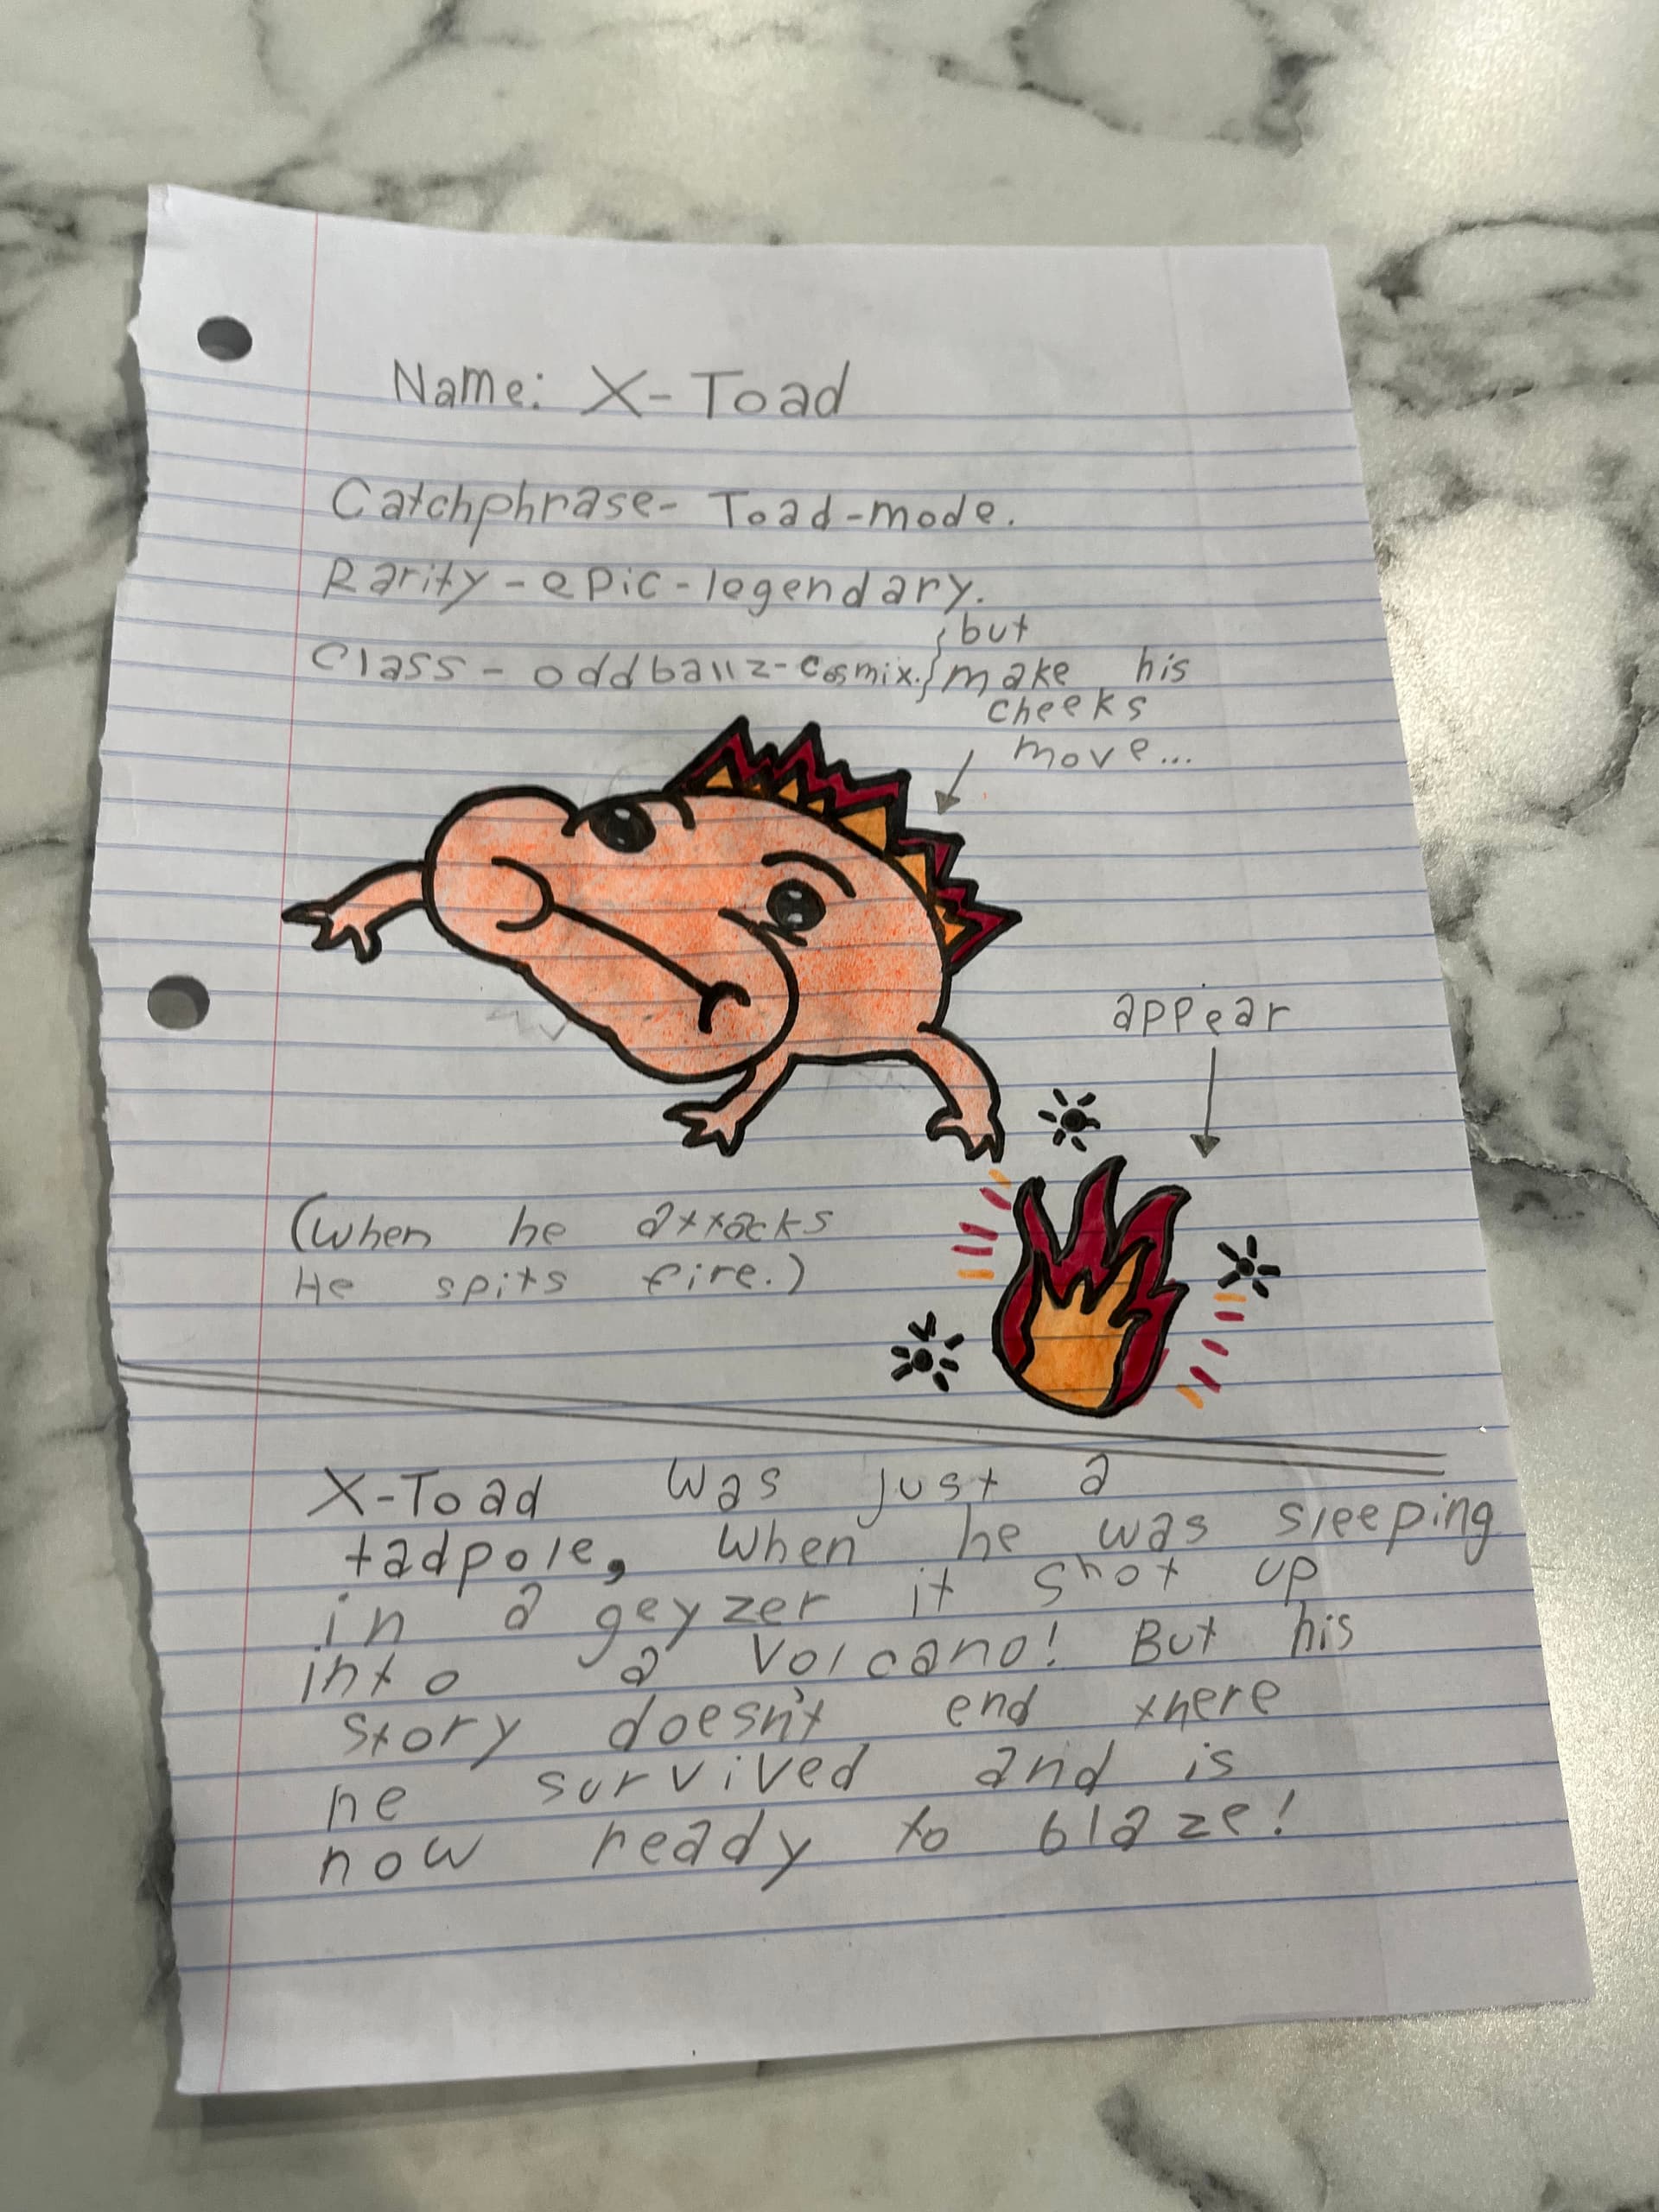 Name: X-Toad
Catchphrase- Toad-mode.
Rarity-epic-legendary.
Class- oddballz-cosmix.} but
make his
cheeks
move...
appear
(when he attacks
He spits fire.)
X-Toad was just a
tadpole, when he was sleeping
in a geyzer it shot up
into a volcano! But his
story doesn't end there
he survived and is
now ready to blaze!